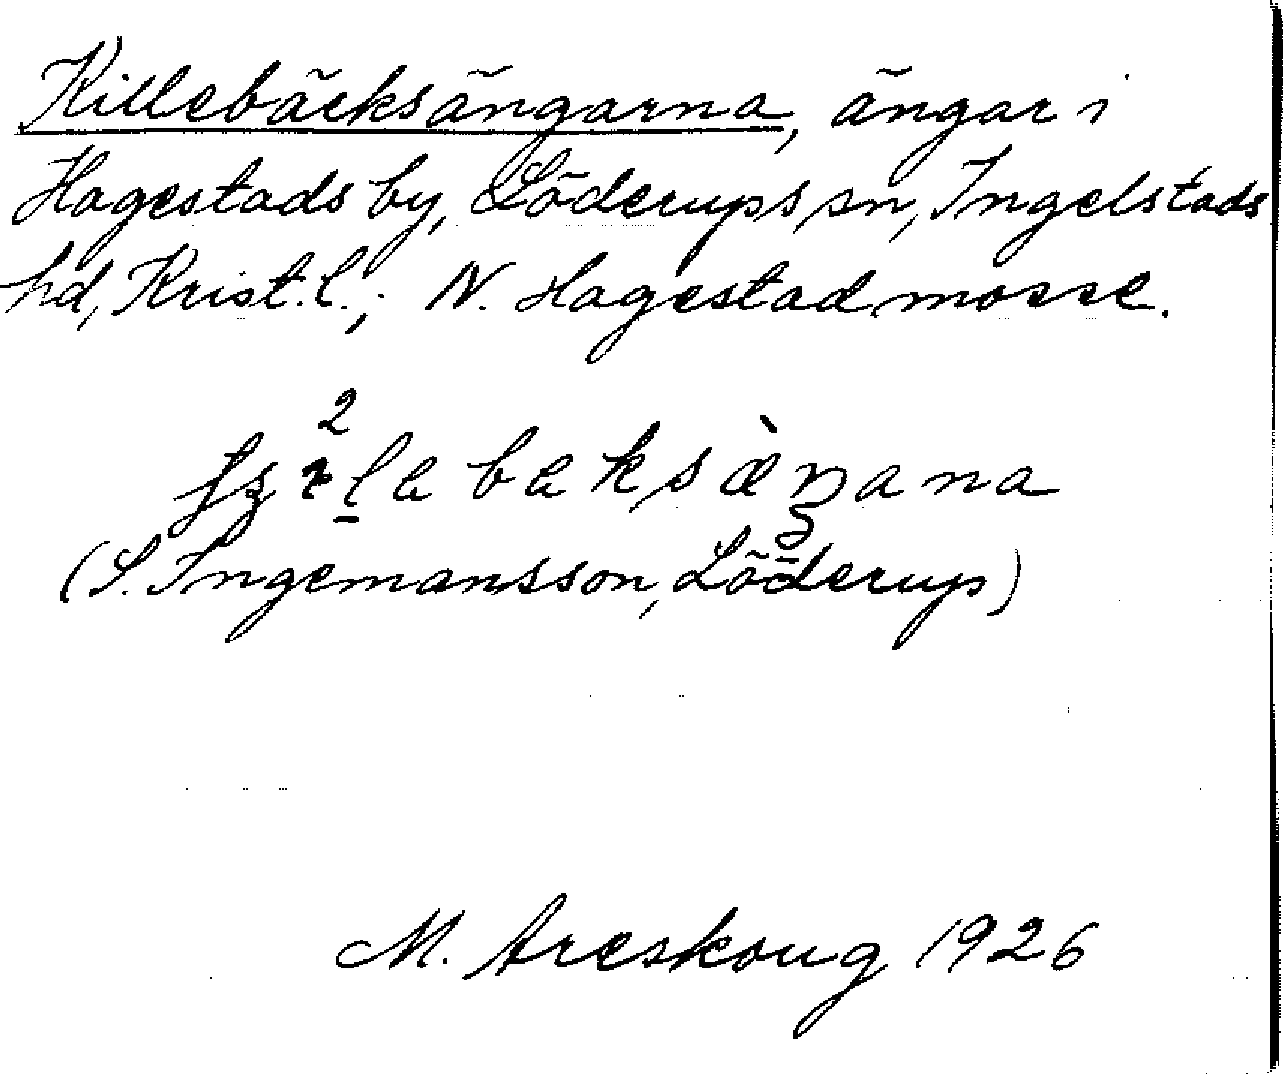 Killebäcksängarna, ängar i
Hagestads by, Löderups sn, Ingelstads
hd, Krist. l.; N. Hagestad mosse.
(S. Ingemansson, Löderup)
M. Areskoug 1926